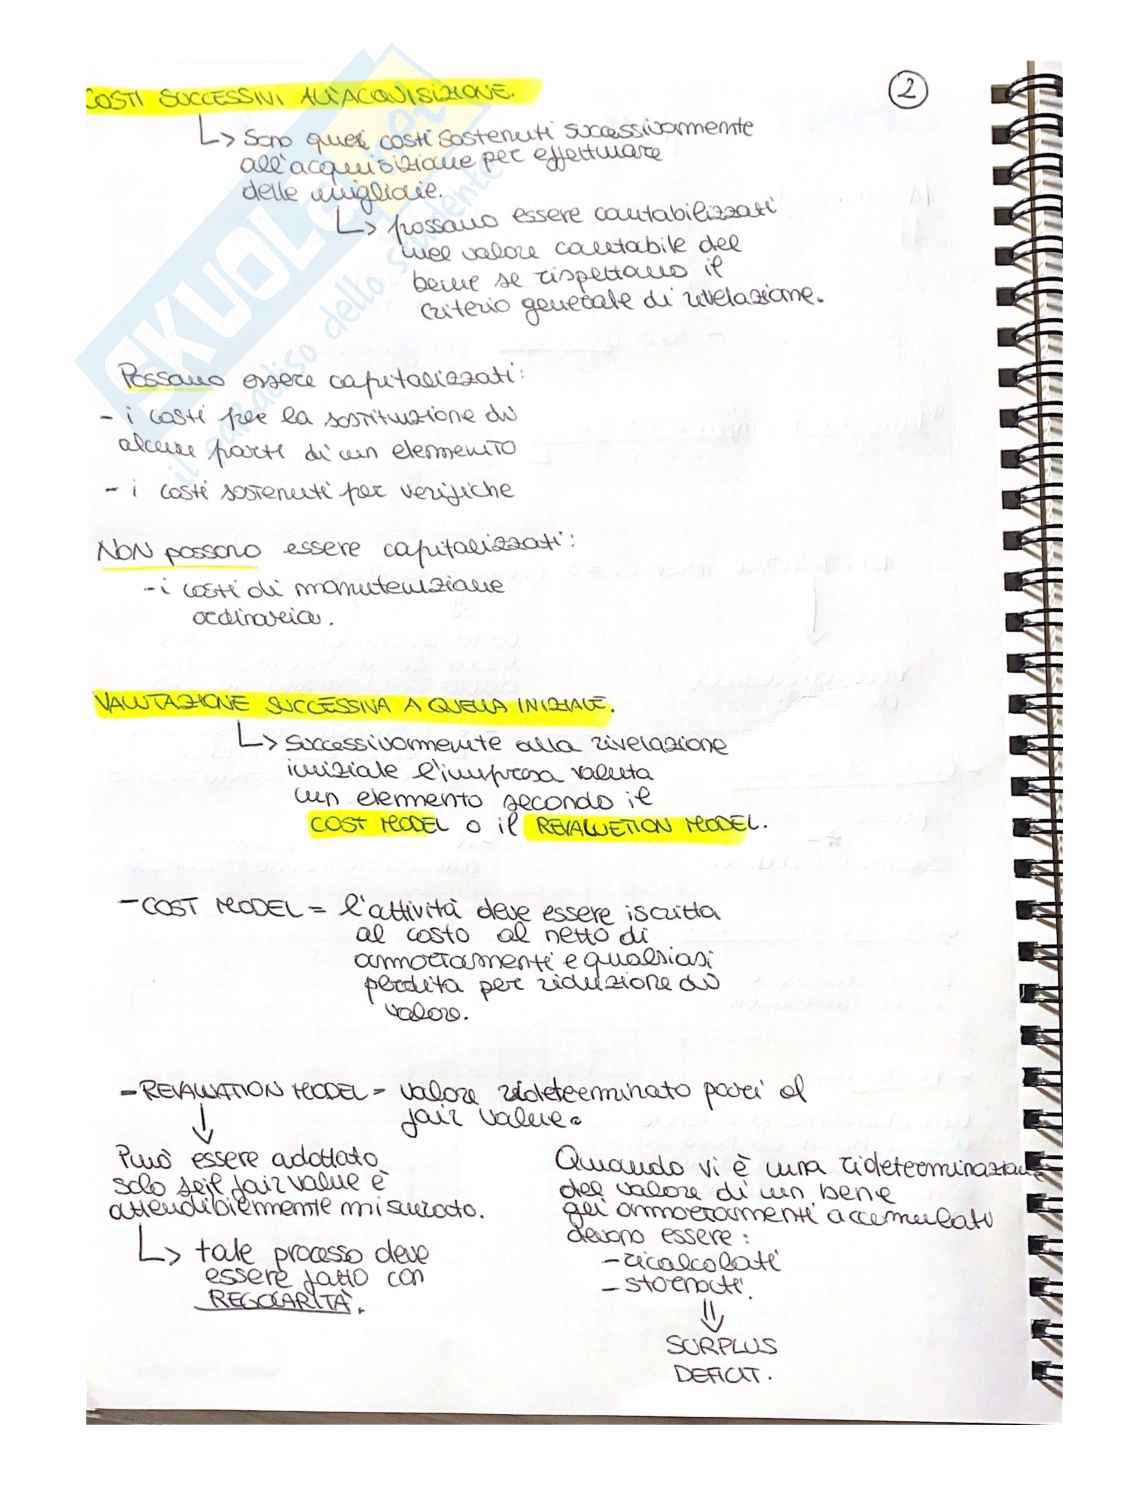 2
COSTI SUCCESSIVI ALL'ACQUISIZIONE.
↳ Sono quei costi sostenuti successivamente
all'acquisizione per effettuare
delle migliorie.
↳ possono essere contabilizzati
nel valore contabile del
bene se rispettano il
criterio generale di rivelazione.
Possono essere capitalizzati:
- i costi per la sostituzione di
alcune parti di un elemento
- i costi sostenuti per verifiche
NON possono essere capitalizzati:
- i costi di manutenzione
ordinaria.
VALUTAZIONE SUCCESSIVA A QUELLA INIZIALE.
↳ Successivamente alla rivelazione
iniziale l'impresa valuta
un elemento secondo il
COST MODEL o il REVALUETION MODEL.
- COST MODEL = l'attività deve essere iscritta
al costo al netto di
ammortamenti e qualsiasi
perdita per riduzione di
valore.
- REVALUATION MODEL = valore rideterminato pari al
fair value.
↓
Può essere adottato
solo se il fair value è
attendibilmente misurato.
↳ tale processo deve
essere fatto con
REGOLARITÀ.
Quando vi è una rideterminazione
del valore di un bene
gli ammortamenti accumulati
devono essere:
- ricalcolati
- stornati.
⇓
SURPLUS
DEFICIT.
SKUOLA.net
il paradiso dello studente